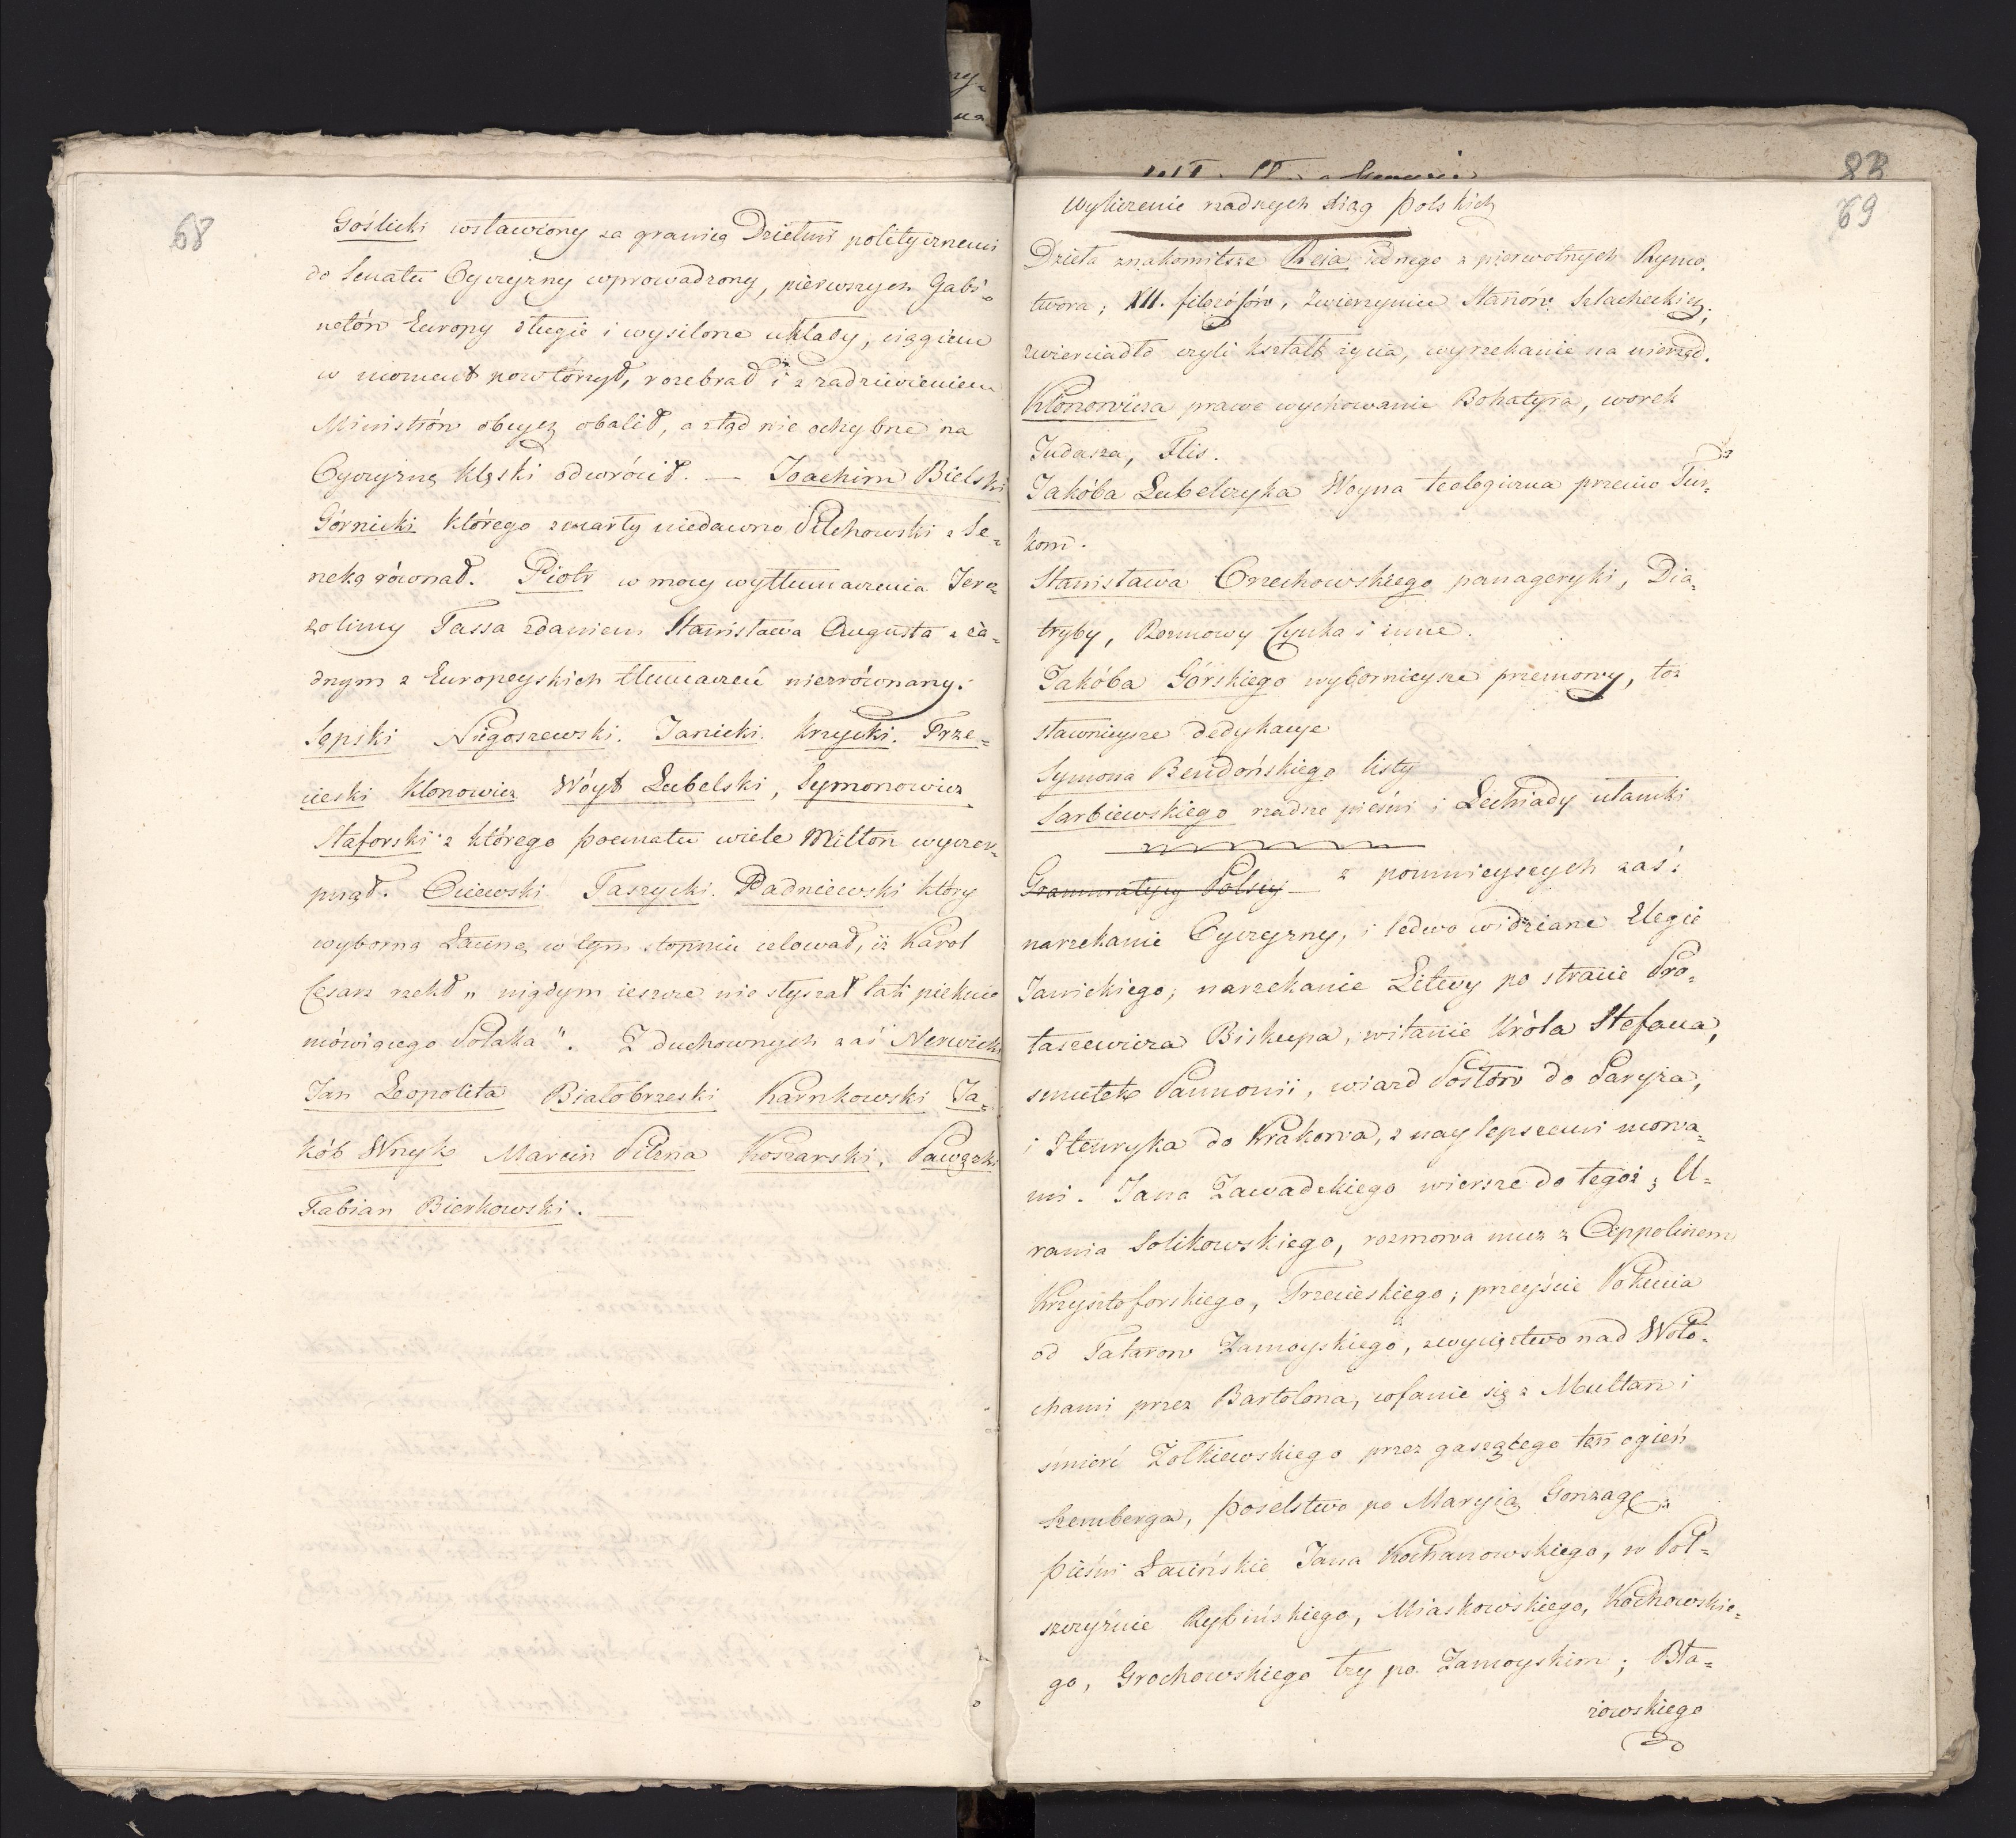 68
Goślicki wsławiony za granicą Dziełmi politycznemi
do Senatu Oyczyzny wprowadzony, pierwszych Gabi-
netów Europy długie i wysilone układy, ciągiem
w moment powtórzył, rozebrał i z zadziwieniem
Ministrów obcych obalił, a ztąd nie ochybne na
Oyczyznę klęski odwrócił. — Joachim Bielski
Górnicki którego zmarły niedawno Pilchowski z Se-
neką równał. Piotr w mocy wytłumaczenia Jero-
zolimy Tassa zdaniem Stanisława Augusta z ża-
dnym z Europeyskich tłumaczeń niezrównany.
Sępski Nigoszewski. Janicki. Krzycki. Trze-
cieski Klonowicz Wóyt Lubelski, Symonowicz
Staforski z którego poematu wiele Milton wyczer-
pnął. Ociewski Taszycki. Padniewski który
wyborną Łaciną w tym stopniu celował, iż Karol
Cesarz rzekł „ nigdym ieszcze nie słyszał tak pięknie
mówiącego Polaka". Z duchownych zaś Nerwicki
Jan Leopolita Białobrzeski Karnkowski Ja-
kób Wuyk Marcin Pilzna Koszarski, Pawęzki
Fabian Bierkowski. —
83
69
Wyliczenie rzadnych xiąg polskich
Dzieła znakomitsze Reia iednego z pierwotnych Rymo-
twora; XII. filozófów, Zwierzyniec Stanów Szlacheckich;
zwierciadło czyli kształt życia, wyrzekanie na nierząd.
Klonowicza prawe wychowanie Bohatyra, worek
Judasza, Flis.
Jakóba Lubelczyka Woyna teologiczna przeciw Tur-
kom.
Stanisława Orzechowskiego panageryki, Dia-
tryby, Rozmowy Cynka i inne.
Jakóba Górskiego wybornieysze przemowy, toż
sławnieysze dedykacye
Symona Beudońskiego listy
Sarbiewskiego rzadsze pieśni i Lechiady ułamki
Grammatycy Polscy — z pomnieyszych zaś:
narzekanie Oyczyzny, i ledwo widziane Elegie
Janickiego; narzekanie Litwy po stracie Pro-
taszewicza Biskupa, witanie Króla Stefana,
smutek Pannonii, wiazd Posłów do Paryża,
i Henryka do Krakowa, z naylepszemi mowa-
mi. Jana Zawadzkiego wiersze do tegoż; U-
rania Solikowskiego, rozmowa muz z Appolinem
Krzysztoforskiego, Trzecieskiego; przeyście Pokucia
od Tatarow Zamoyskiego, zwycięztwo nad Woło-
chami przez Bartolona, cofanie się z Multan i
śmierć Żołkiewskiego przez gaszącego ten ogień
Szemberga, poselstwo po Maryią Gonzagę;
pieśni Łacińskie Jana Kochanowskiego, w Pol-
szczyźnie Rybińskiego, Miaskowskiego, Kochowskie-
go, Grochowskiego łzy po Zamoyskim; Bła-
żowskiego